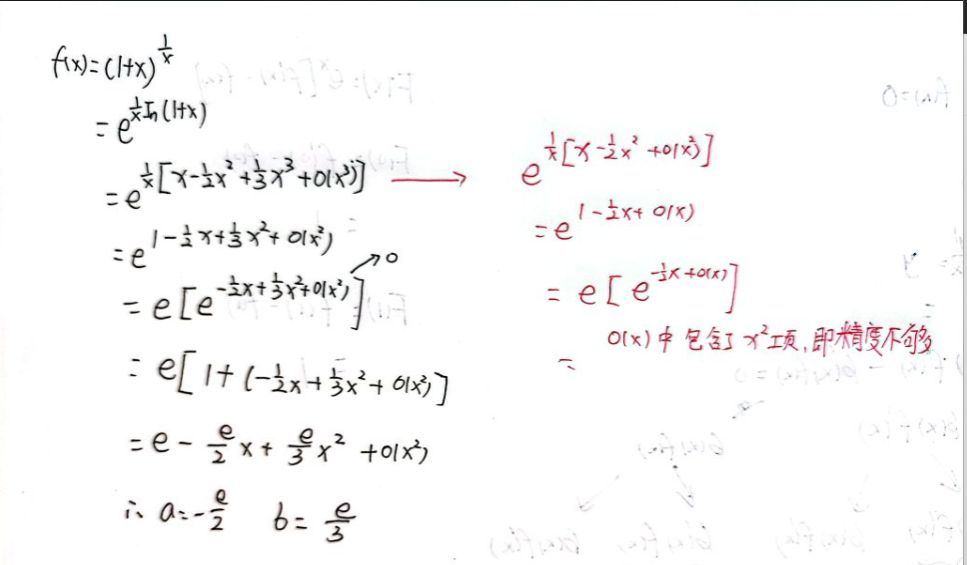 f(x)=(1+x)^{1/x}
=e^{1/x ln(1+x)}
=e^{1/x[x-1/2x²+1/3x³+o(x³)]} →
=e^{1-1/2x+1/3x²+o(x²)}
=e[e^{-1/2x+1/3x²+o(x²)}] →0
=e[1+(-1/2x+1/3x²+o(x²)]
=e-e/2x+e/3x²+o(x²)
∴ a=-e/2 b=e/3
e^{1/x[x-1/2x²+o(x²)]}
=e^{1-1/2x+o(x)}
=e[e^{-1/2x+o(x)}]
o(x)中包含了x²项,即精度不够
=